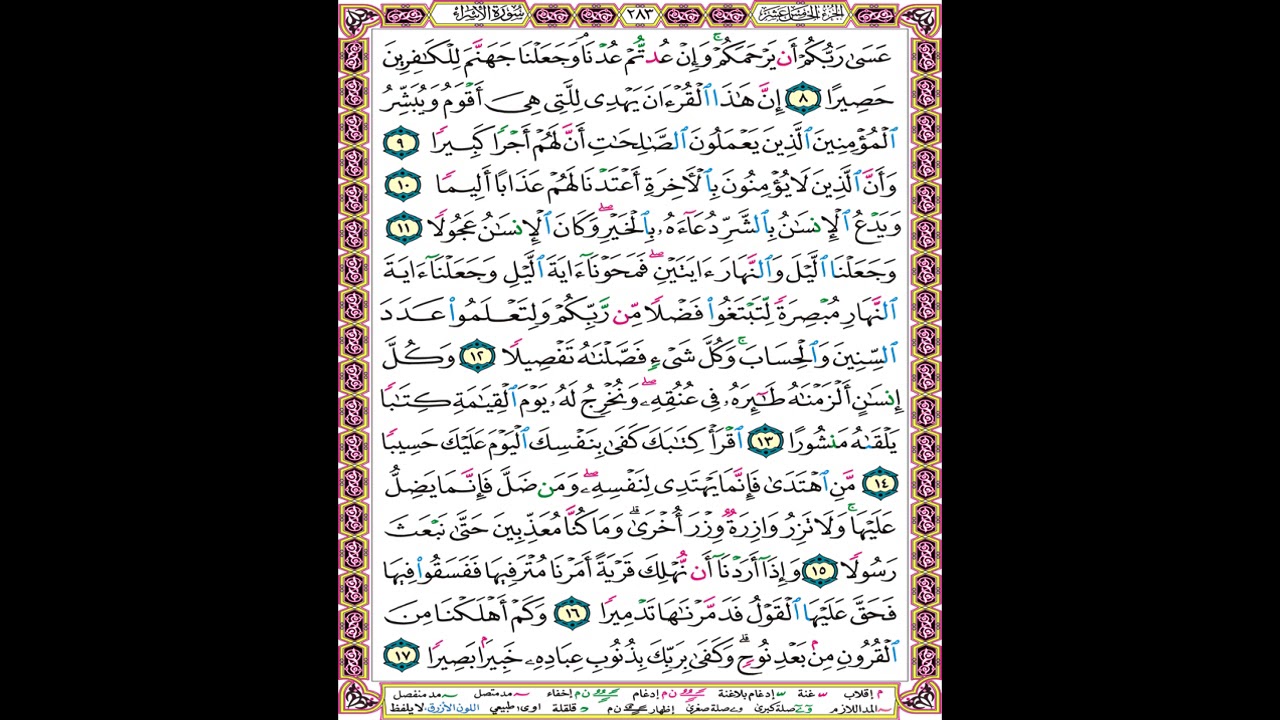 الجزء الخامس عشر ٢٨٣ سورة الإسراء
عَسَىٰ رَبُّكُمْ أَن يَرْحَمَكُمْ ۚ وَإِنْ عُدتُّمْ عُدْنَا ۘ وَجَعَلْنَا جَهَنَّمَ لِلْكَافِرِينَ
حَصِيرًا ٨ إِنَّ هَٰذَا الْقُرْءَانَ يَهْدِى لِلَّتِى هِىَ أَقْوَمُ وَيُبَشِّرُ
الْمُؤْمِنِينَ الَّذِينَ يَعْمَلُونَ الصَّالِحَاتِ أَنَّ لَهُمْ أَجْرًا كَبِيرًا ٩
وَأَنَّ الَّذِينَ لَا يُؤْمِنُونَ بِالْأَخِرَةِ أَعْتَدْنَا لَهُمْ عَذَابًا أَلِيمًا ١٠
وَيَدْعُ الْإِنسَانُ بِالشَّرِّ دُعَاءَهُۥ بِالْخَيْرِ ۖ وَكَانَ الْإِنسَانُ عَجُولًا ١١
وَجَعَلْنَا الَّيْلَ وَالنَّهَارَ ءَايَتَيْنِ ۖ فَمَحَوْنَا ءَايَةَ الَّيْلِ وَجَعَلْنَا ءَايَةَ
النَّهَارِ مُبْصِرَةً لِّتَبْتَغُوا فَضْلًا مِّن رَّبِّكُمْ وَلِتَعْلَمُوا عَدَدَ
السِّنِينَ وَالْحِسَابَ ۚ وَكُلَّ شَىْءٍ فَصَّلْنَاهُ تَفْصِيلًا ١٢ وَكُلَّ
إِنسَانٍ أَلْزَمْنَاهُ طَائِرَهُۥ فِى عُنُقِهِۦ ۖ وَنُخْرِجُ لَهُۥ يَوْمَ الْقِيَامَةِ كِتَابًا
يَلْقَىٰهُ مَنشُورًا ١٣ اقْرَأْ كِتَابَكَ كَفَىٰ بِنَفْسِكَ الْيَوْمَ عَلَيْكَ حَسِيبًا
١٤ مَّنِ اهْتَدَىٰ فَإِنَّمَا يَهْتَدِى لِنَفْسِهِۦ ۖ وَمَن ضَلَّ فَإِنَّمَا يَضِلُّ
عَلَيْهَا ۚ وَلَا تَزِرُ وَازِرَةٌ وِزْرَ أُخْرَىٰ ۗ وَمَا كُنَّا مُعَذِّبِينَ حَتَّىٰ نَبْعَثَ
رَسُولًا ١٥ وَإِذَا أَرَدْنَا أَن نُّهْلِكَ قَرْيَةً أَمَرْنَا مُتْرَفِيهَا فَفَسَقُوا فِيهَا
فَحَقَّ عَلَيْهَا الْقَوْلُ فَدَمَّرْنَاهَا تَدْمِيرًا ١٦ وَكَمْ أَهْلَكْنَا مِنَ
الْقُرُونِ مِنۢ بَعْدِ نُوحٍ ۗ وَكَفَىٰ بِرَبِّكَ بِذُنُوبِ عِبَادِهِۦ خَبِيرًا بَصِيرًا ١٧
م إقلاب غنة إدغام بلاغنة ن م إدغام ن م إخفاء مد متصل مد منفصل
المد اللازم صلة كبرى صلة صغرى إظهار ن م قلقلة اوى طبيعي اللون الأزرق لا يلفظ